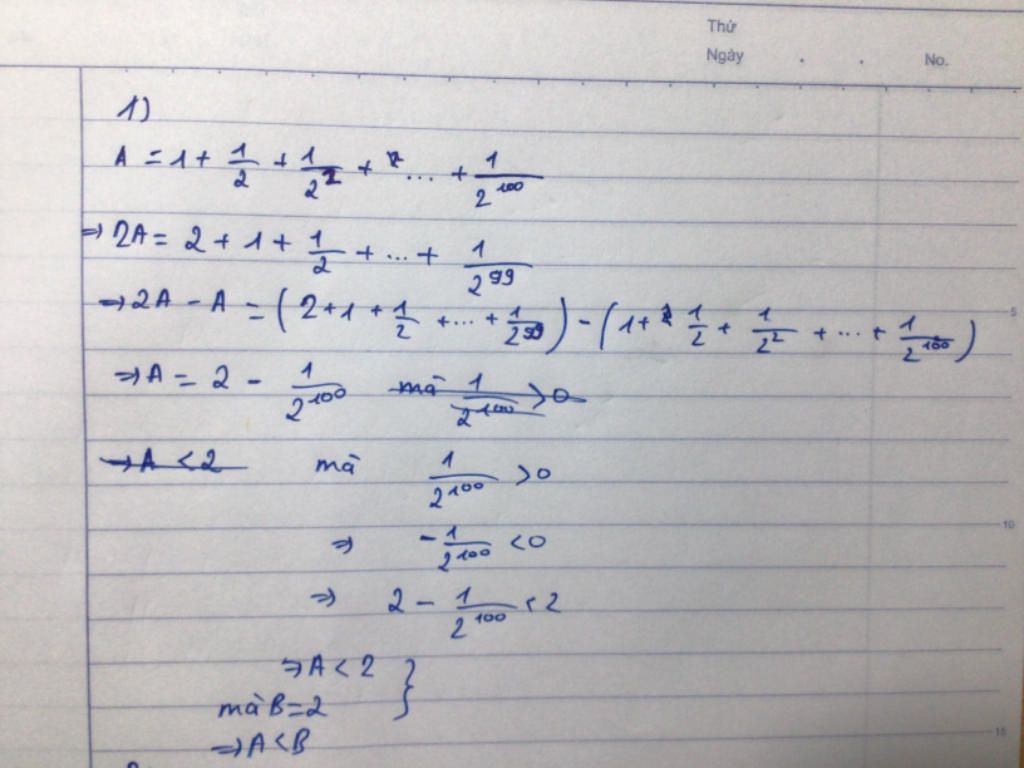 Thứ
Ngày . . No.
1)
A = 1 + 1/2 + 1/2^2 + ... + 1/2^100
⇒ 2A = 2 + 1 + 1/2 + ... + 1/2^99
⇒ 2A - A = (2 + 1 + 1/2 + ... + 1/2^99) - (1 + 1/2 + 1/2^2 + ... + 1/2^100)
5
⇒ A = 2 - 1/2^100 mà 1/2^100 > 0
⇒ A < 2 mà 1/2^100 > 0
10
⇒ -1/2^100 < 0
⇒ 2 - 1/2^100 < 2
⇒ A < 2 }
mà B = 2
⇒ A < B
15